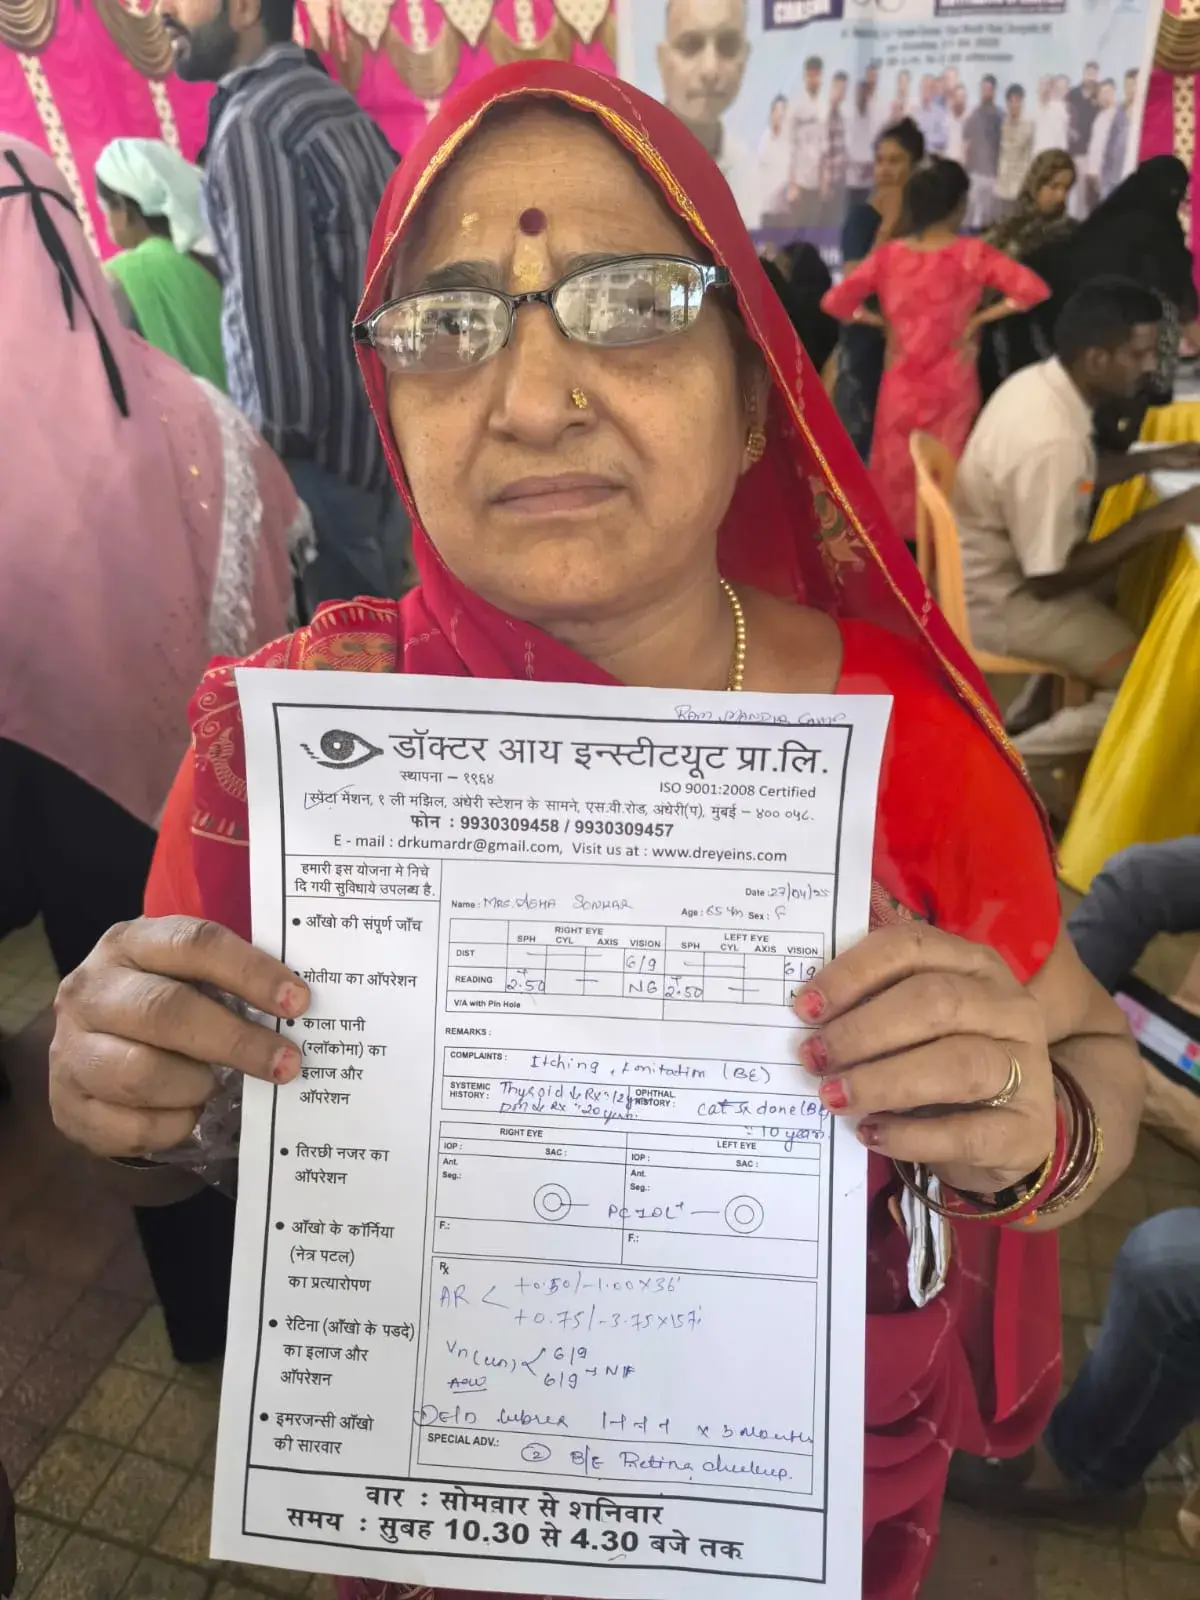 RAM MANDIR CAMP
डॉक्टर आय इन्स्टीटयूट प्रा.लि.
स्थापना – १९६४
ISO 9001:2008 Certified
स्पेंटा मेंशन, १ ली मझिल, अंधेरी स्टेशन के सामने, एस.वी.रोड, अंधेरी(प), मुंबई – ४०० ०५८.
फोन : 9930309458 / 9930309457
E - mail : drkumardr@gmail.com, Visit us at : www.dreyeins.com
हमारी इस योजना मे निचे
दि गयी सुविधाये उपलब्ध है.
• आँखो की संपूर्ण जाँच
• मोतीया का ऑपरेशन
• काला पानी
(ग्लॉकोमा) का
इलाज और
ऑपरेशन
• तिरछी नजर का
ऑपरेशन
• आँखो के कॉर्निया
(नेत्र पटल)
का प्रत्यारोपण
• रेटिना (आँखो के पडदे)
का इलाज और
ऑपरेशन
• इमरजन्सी आँखो
की सारवार
Date : 27/04/25
Name : Mrs. Asha Sonkar Age : 65 Sex : F
RIGHT EYE LEFT EYE
SPH CYL AXIS VISION SPH CYL AXIS VISION
DIST 6/9 6/9
READING +2.50 N6 +2.50
V/A with Pin Hole
REMARKS :
COMPLAINTS : Itching, Irritation (BE)
SYSTEMIC HISTORY : Thyroid
DM 20 years.
OPHTHAL HISTORY : cat Sx done (BE)
10 years
RIGHT EYE LEFT EYE
IOP : SAC : IOP : SAC :
Ant. Seg.: PCIOL+ Ant. Seg.:
F.: F.:
Rx
AR < +0.50/-1.00x36
+0.75/-3.75x157
Vn (un) < 6/9
6/9
E/D Lubrex x 3 months
SPECIAL ADV.: 2 B/E Retina checkup.
वार : सोमवार से शनिवार
समय : सुबह 10.30 से 4.30 बजे तक